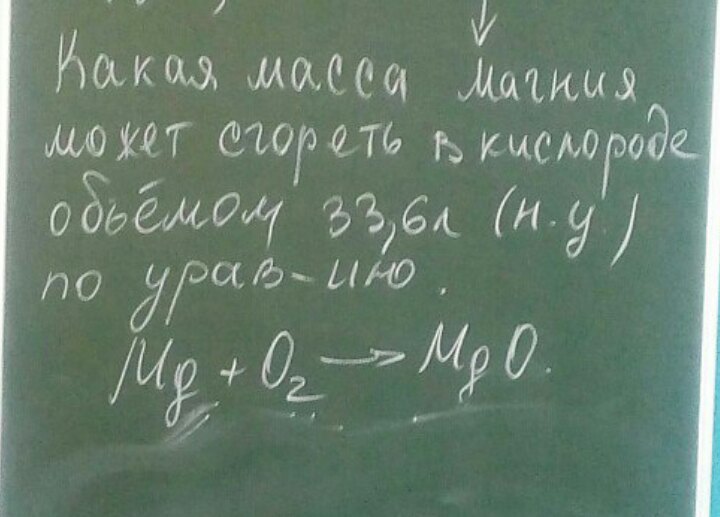 Какая масса магния
может сгореть в кислороде
объёмом 33,6л (н.у.)
по урав-ию.
Mg + O₂ → MgO.